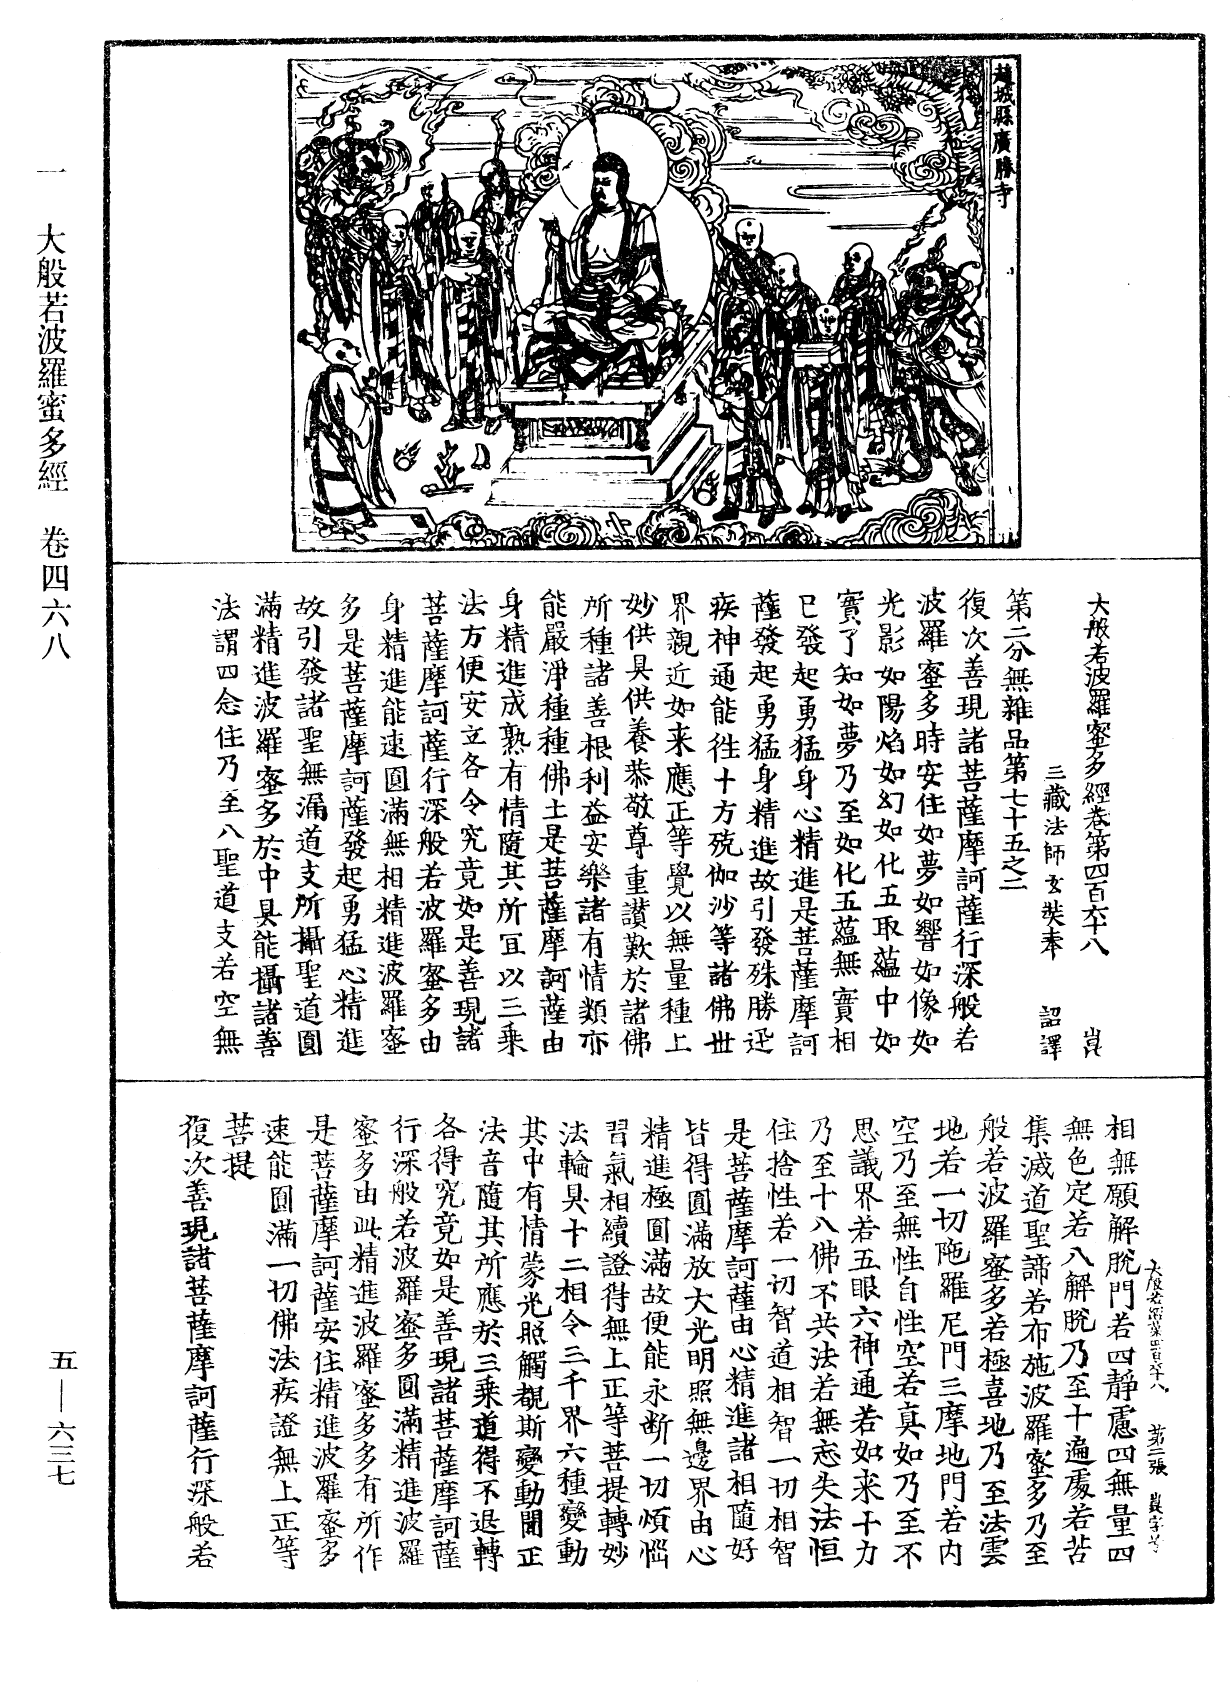 趙城縣廣勝寺
大般若波羅蜜多經卷第四百六十八 崑
三藏法師玄奘奉 詔譯
第二分無雜品第七十五之二
復次善現諸菩薩摩訶薩行深般若
波羅蜜多時安住如夢如響如像如
光影如陽焰如幻如化五取蘊中如
實了知如夢乃至如化五蘊無實相
已發起勇猛身心精進是菩薩摩訶
薩發起勇猛身精進故引發殊勝迅
疾神通能往十方殑伽沙等諸佛世
界親近如来應正等覺以無量種上
妙供具供養恭敬尊重讃歎於諸佛
所種諸善根利益安樂諸有情類亦
能嚴淨種種佛土是菩薩摩訶薩由
身精進成熟有情隨其所宜以三乘
法方便安立各令究竟如是善現諸
菩薩摩訶薩行深般若波羅蜜多由
身精進能速圓滿無相精進波羅蜜
多是菩薩摩訶薩發起勇猛心精進
故引發諸聖無漏道支所攝聖道圓
滿精進波羅蜜多於中具能攝諸善
法謂四念住乃至八聖道支若空無
大般若經第四百六十八 第二張 崑字号
相無願解脫門若四靜慮四無量四
無色定若八解脫乃至十遍處若苦
集滅道聖諦若布施波羅蜜多乃至
般若波羅蜜多若極喜地乃至法雲
地若一切陁羅尼門三摩地門若内
空乃至無性自性空若真如乃至不
思議界若五眼六神通若如来十力
乃至十八佛不共法若無忘失法恒
住捨性若一切智道相智一切相智
是菩薩摩訶薩由心精進諸相隨好
皆得圓滿放大光明照無邊界由心
精進極圓滿故便能永斷一切煩惱
習氣相續證得無上正等菩提轉妙
法輪具十二相令三千界六種變動
其中有情蒙光照觸覩斯變動聞正
法音隨其所應於三乘道得不退轉
各得究竟如是善現諸菩薩摩訶薩
行深般若波羅蜜多圓滿精進波羅
蜜多由此精進波羅蜜多多有所作
是菩薩摩訶薩安住精進波羅蜜多
速能圓滿一切佛法疾證無上正等
菩提
復次善現諸菩薩摩訶薩行深般若
一 大般若波羅蜜多經 卷四六八
五—六三七